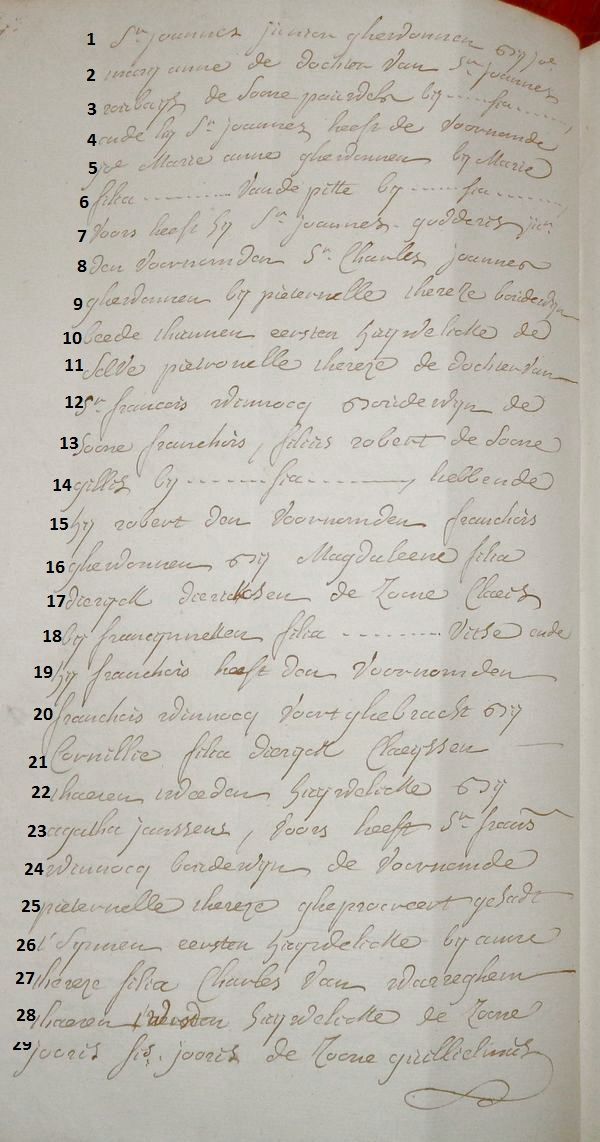 1 Sr. joannes junior ghewonnen bij joe.
2 marij anne de dochter van Sr. joannes
3 de Sone pauwels bij ------ fia ------,
4 ende hij Sr. joannes heeft de voornomde
5 joe Marie anne ghewonnen by Marie
6 filia ---------- vande pitte by ------ fia ------,
7 voors heeft hij Sr. joannes godderis junr.
8 den voornomden Sr. Charles joannes
9 ghewonnen by pieternelle thereze boidewijn
10 beede thunnen eersten haijwelicke de
11 Selve pietronelle thereze de dochter van
12 Sr. francois winnocq boidewijn de
13 Sone franchois, filius robert de Sone
14 gillis by ------ fia --------, hebbende
15 hij robert den voornomden franchois
16 ghewonnen bij Magdaleene filia
17 dierijck diericksen de Zone Claeis
18 bij francijnneken filia -------- vitse ende
19 hij franchois heeft den voornomden
20 franchois winnocq voortghebracht bij
21 Cornillie filia dierijck Claeyssen
22 thaeren tweeden haijwelicke bij
23 agatha janssens, voors heeft Sr. frans
24 winnocq boidewijn de voornomde
25 pieternelle thereze gheprocreert gehadt
26 t' Synnen eersten haijwelicke by anne
27 thereze filia Charles van warreghem
28 thaeren haijwelicke de Zone
29 jooris fis. jooris de Zone guillielmus